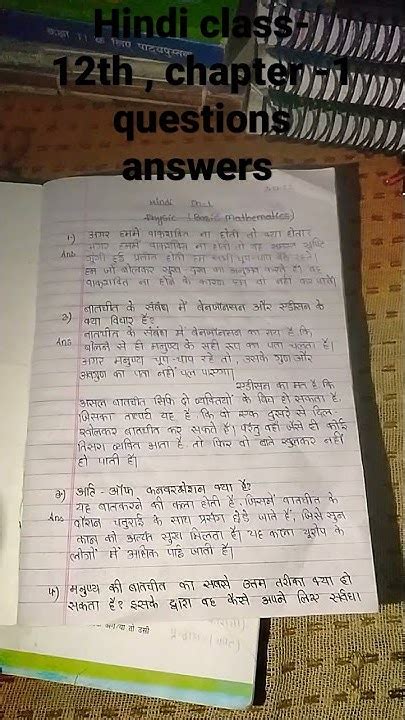 Hindi class-
12th , chapter -1
questions
answers
कक्षा 11 के लिए पाठ्यपुस्तक
Hindi
Physic (Basic Mathematics)
1) अगर हममें वाकशक्ति ना होती तो क्या होता?
Ans अगर हममें वाकशक्ति ना होती तो यह समस्त सृष्टि
गूंगी हुई प्रतीत होती हम सभी चुप-चाप बैठे रहते।
हम जो बोलकर सुख दुख का अनुभव करते हैं वह
वाकशक्ति ना होने के कारण हम वो नहीं कर पाते।
2) बातचीत के संबंध में बेनजानसन और एडीसन के
क्या विचार हैं?
Ans बातचीत के संबंध में बेनजानसन का मत है कि
बोलने से ही मनुष्य के सही रूप का पता चलता है।
अगर मनुष्य चुप-चाप रहे तो उसके गुण और
अवगुण का पता नहीं चल पाएगा।
एडीसन का मत है कि
असल बातचीत सिर्फ दो व्यक्तियों के बीच हो सकता है,
जिसका तात्पर्य यह है कि वो एक दुसरे से दिल
खोलकर बातचीत कर सकते हैं। परंतु वही जैसे ही कोई
तिसरा व्यक्ति आता है तो फिर वो बाते खुलकर नहीं
हो पाती है।
3) अति - ऑफ कनवरशेशन क्या है?
Ans यह बातकरने की कला होती है, जिसमें बातचीत के
दौरान चतुराई के साथ प्रसंग छोड़े जाते हैं, जिसे सुन
कान को अत्यंत सुख मिलता है। यह कला यूरोप के
लोगों में अधिक पाई जाती है।
4) मनुष्य की बातचीत का सबसे उत्तम तरीका क्या हो
सकता है? इसके द्वारा वह कैसे अपने लिए सर्वथा